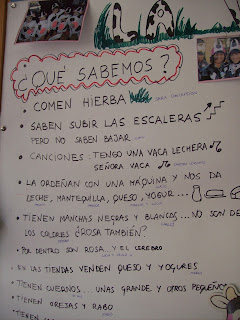 LA
¿QUÉ SABEMOS?
• COMEN HIERBA
• SABEN SUBIR LAS ESCALERAS
PERO NO SABEN BAJAR
• CANCIONES: TENGO UNA VACA LECHERA
SEÑORA VACA
• LA ORDEÑAN CON UNA MÁQUINA Y NOS DA
LECHE, MANTEQUILLA, QUESO, YOGUR...
• TIENEN MANCHAS NEGRAS Y BLANCAS... NO SON DE
LOS COLORES ¿ROSA TAMBIÉN?
• POR DENTRO SON ROSA... Y EL CEREBRO
• EN LAS TIENDAS VENDEN QUESO Y YOGURES
• TIENEN CUERNOS... UNAS GRANDE Y OTROS PEQUEÑO
• TIENEN OREJAS Y RABO